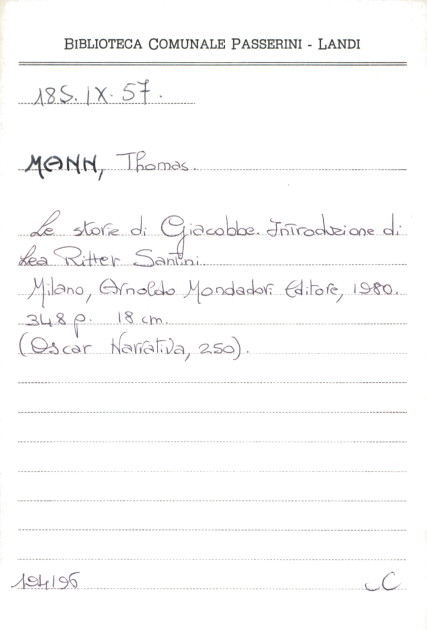 BIBLIOTECA COMUNALE PASSERINI - LANDI
18S. IX. 57.
MANN, Thomas.
Le storie di Giacobbe. Introduzione di
Lea Ritter Santini.
Milano, Arnoldo Mondadori Editore, 1980.
348 p. 18 cm.
(Oscar Narrativa, 250).
194196
C